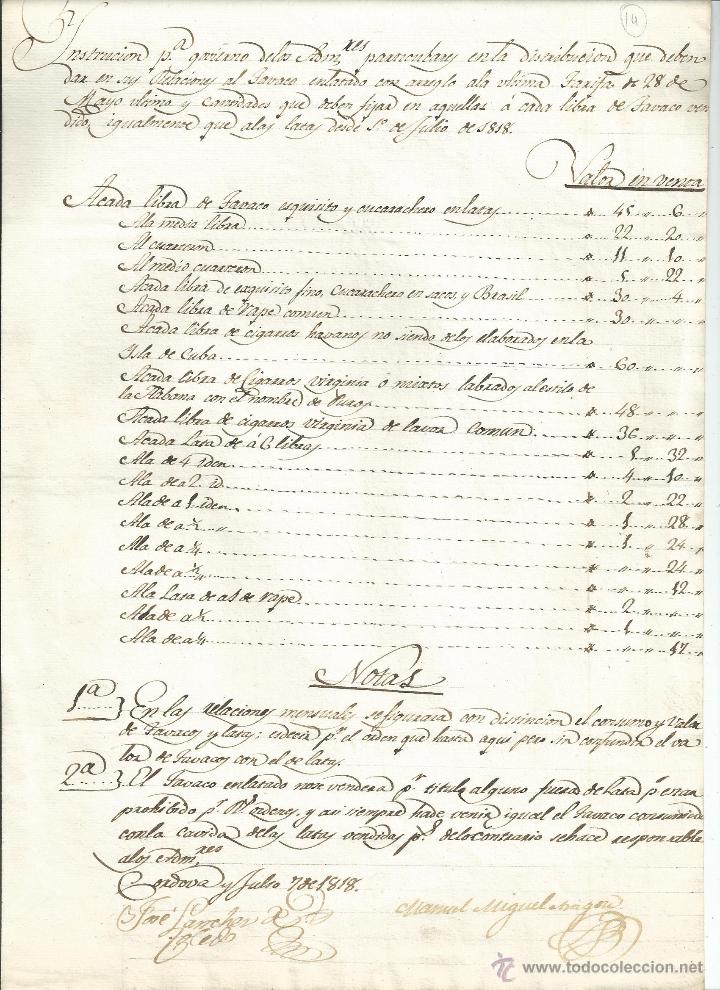 14
Instrucion p.ª govierno delos Adm.res particulares en la distribucion que deben
dar en sus Relaciones al Tavaco enlatado con arreglo ala ultima Tarifa de 28 de
Mayo ultimo y cantidades que deben fijar en aquellas á cada libra de Tavaco ven
dido, igualmente que alas latas desde 1º de Julio de 1818.
Valor en venta
Acada libra de Tavaco exquisito y cucarachero enlatas 45 6
Ala media libra 22 20
Al cuarteron 11 10
Al medio cuarteron 5 22
Acada libra de exquisito fino, cucarachero en sacos, y Brasil 30 4
Acada libra de rape comun 30
Acada libra de cigarros havanos no siendo delos elaborados enla
Isla de Cuba 60
Acada libra de Cigarros virginia o mixtos labrados al estilo de
la Abana con el nombre de Puros 48
Acada libra de cigarros virginia de lavor comun 36
Acada Lata de á 6 libras 5 32
Ala de 4 iden 4 10
Ala de a 2 id 2 22
Ala de a 1 iden 1 28
Ala de a ½ 1 24
Ala de a ¼ 24
Ala de a ⅛ 12
Ala Lata de a 1 de rape 2
Ala de a ½ 1
Ala de a ¼ 17
Notas
1ª En las relaciones mensuales se figurara con distincion el consumo y valor
de Tavacos y latas: p.r el orden que hasta aqui pero sin confundir el va
lor de Tavacos con el de latas.
2ª El Tavaco enlatado nose vendera p.r titulo alguno fuera de lata p.r estar
prohibido p.r R.s ordenes, y asi siempre hade venir igual el Tavaco consumido
conla cavida delas latas vendidas p.s delo contrario sehace responsable
alos Adm.res
Cordova y Julio 7 de 1818.
José Larcher Manuel Miguel Aragon
www.todocoleccion.net